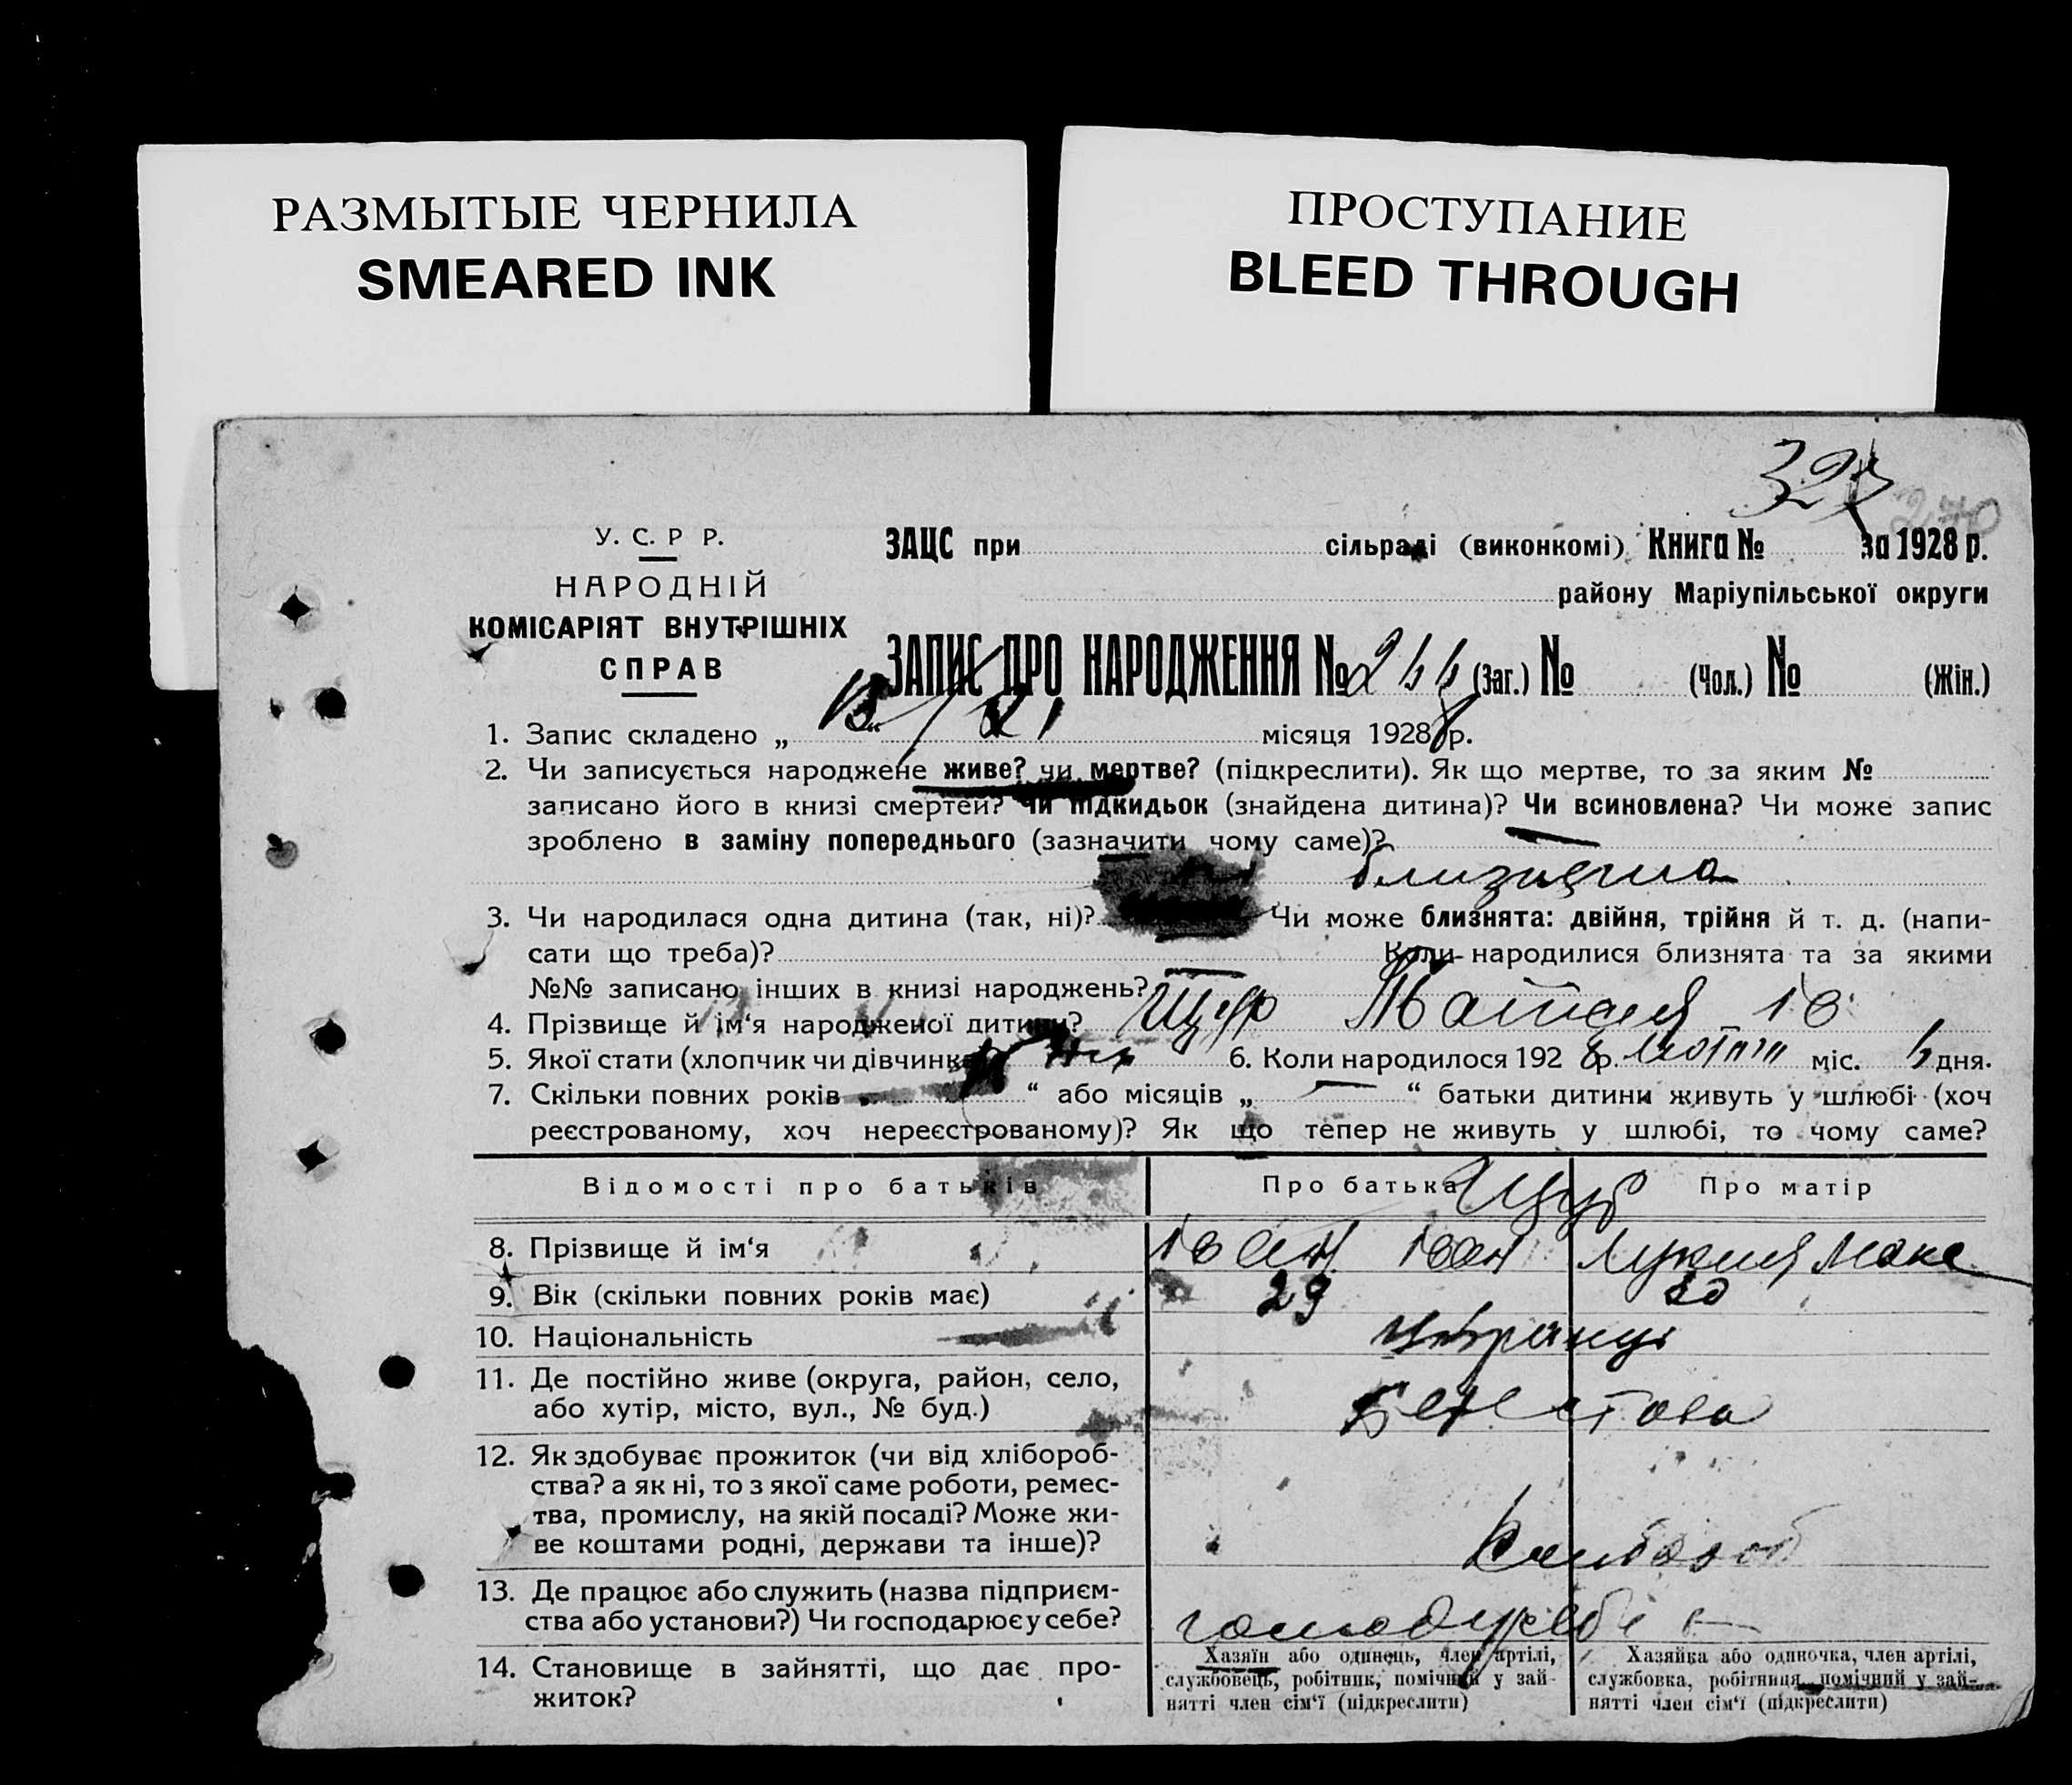 РАЗМЫТЫЕ ЧЕРНИЛА
SMEARED INK
ПРОСТУПАНИЕ
BLEED THROUGH
270
У. С. Р Р.
НАРОДНІЙ
КОМІСАРІЯТ ВНУТРІШНІХ
СПРАВ
ЗАЦС при сільраді (виконкомі) Книга № за 1928 р.
району Маріупільської округи
ЗАПИС ПРО НАРОДЖЕННЯ № (Заг.) № (Чол.) № (Жін.)
1. Запис складено „ “ місяця 1928 р.
2. Чи записується народжене живе? чи мертве? (підкреслити). Як що мертве, то за яким №
записано його в книзі смертей? Чи підкидьок (знайдена дитина)? Чи всиновлена? Чи може запис
зроблено в заміну попереднього (зазначити чому саме)?
3. Чи народилася одна дитина (так, ні)? Чи може близнята: двійня, трійня й т. д. (напи-
сати що треба)? Коли народилися близнята та за якими
№№ записано інших в книзі народжень?
4. Прізвище й ім‘я народженої дитини?
5. Якої стати (хлопчик чи дівчинка 6. Коли народилося 192 8 р. міс. дня.
7. Скільки повних років „ “ або місяців „ — “ батьки дитини живуть у шлюбі (хоч
реєстрованому, хоч нереєстрованому)? Як що тепер не живуть у шлюбі, то чому саме?
Відомості про батьків Про батька Про матір
8. Прізвище й ім‘я Іван Іван
9. Вік (скільки повних років має) 29 30
10. Національність
11. Де постійно живе (округа, район, село,
або хутір, місто, вул., № буд.)
12. Як здобуває прожиток (чи від хлібороб-
ства? а як ні, то з якої саме роботи, ремес-
тва, промислу, на якій посаді? Може жи-
ве коштами родні, держави та інше)?
13. Де працює або служить (назва підприєм-
ства або установи?) Чи господарює у себе?
14. Становище в зайнятті, що дає про-
житок?
Хазяїн або одинець, член артілі,
службовець, робітник, помічний у зай-
нятті член сім‘ї (підкреслити)
Хазяйка або одиночка, член артілі,
службовка, робітниця, помічний у зай-
нятті член сім‘ї (підкреслити)